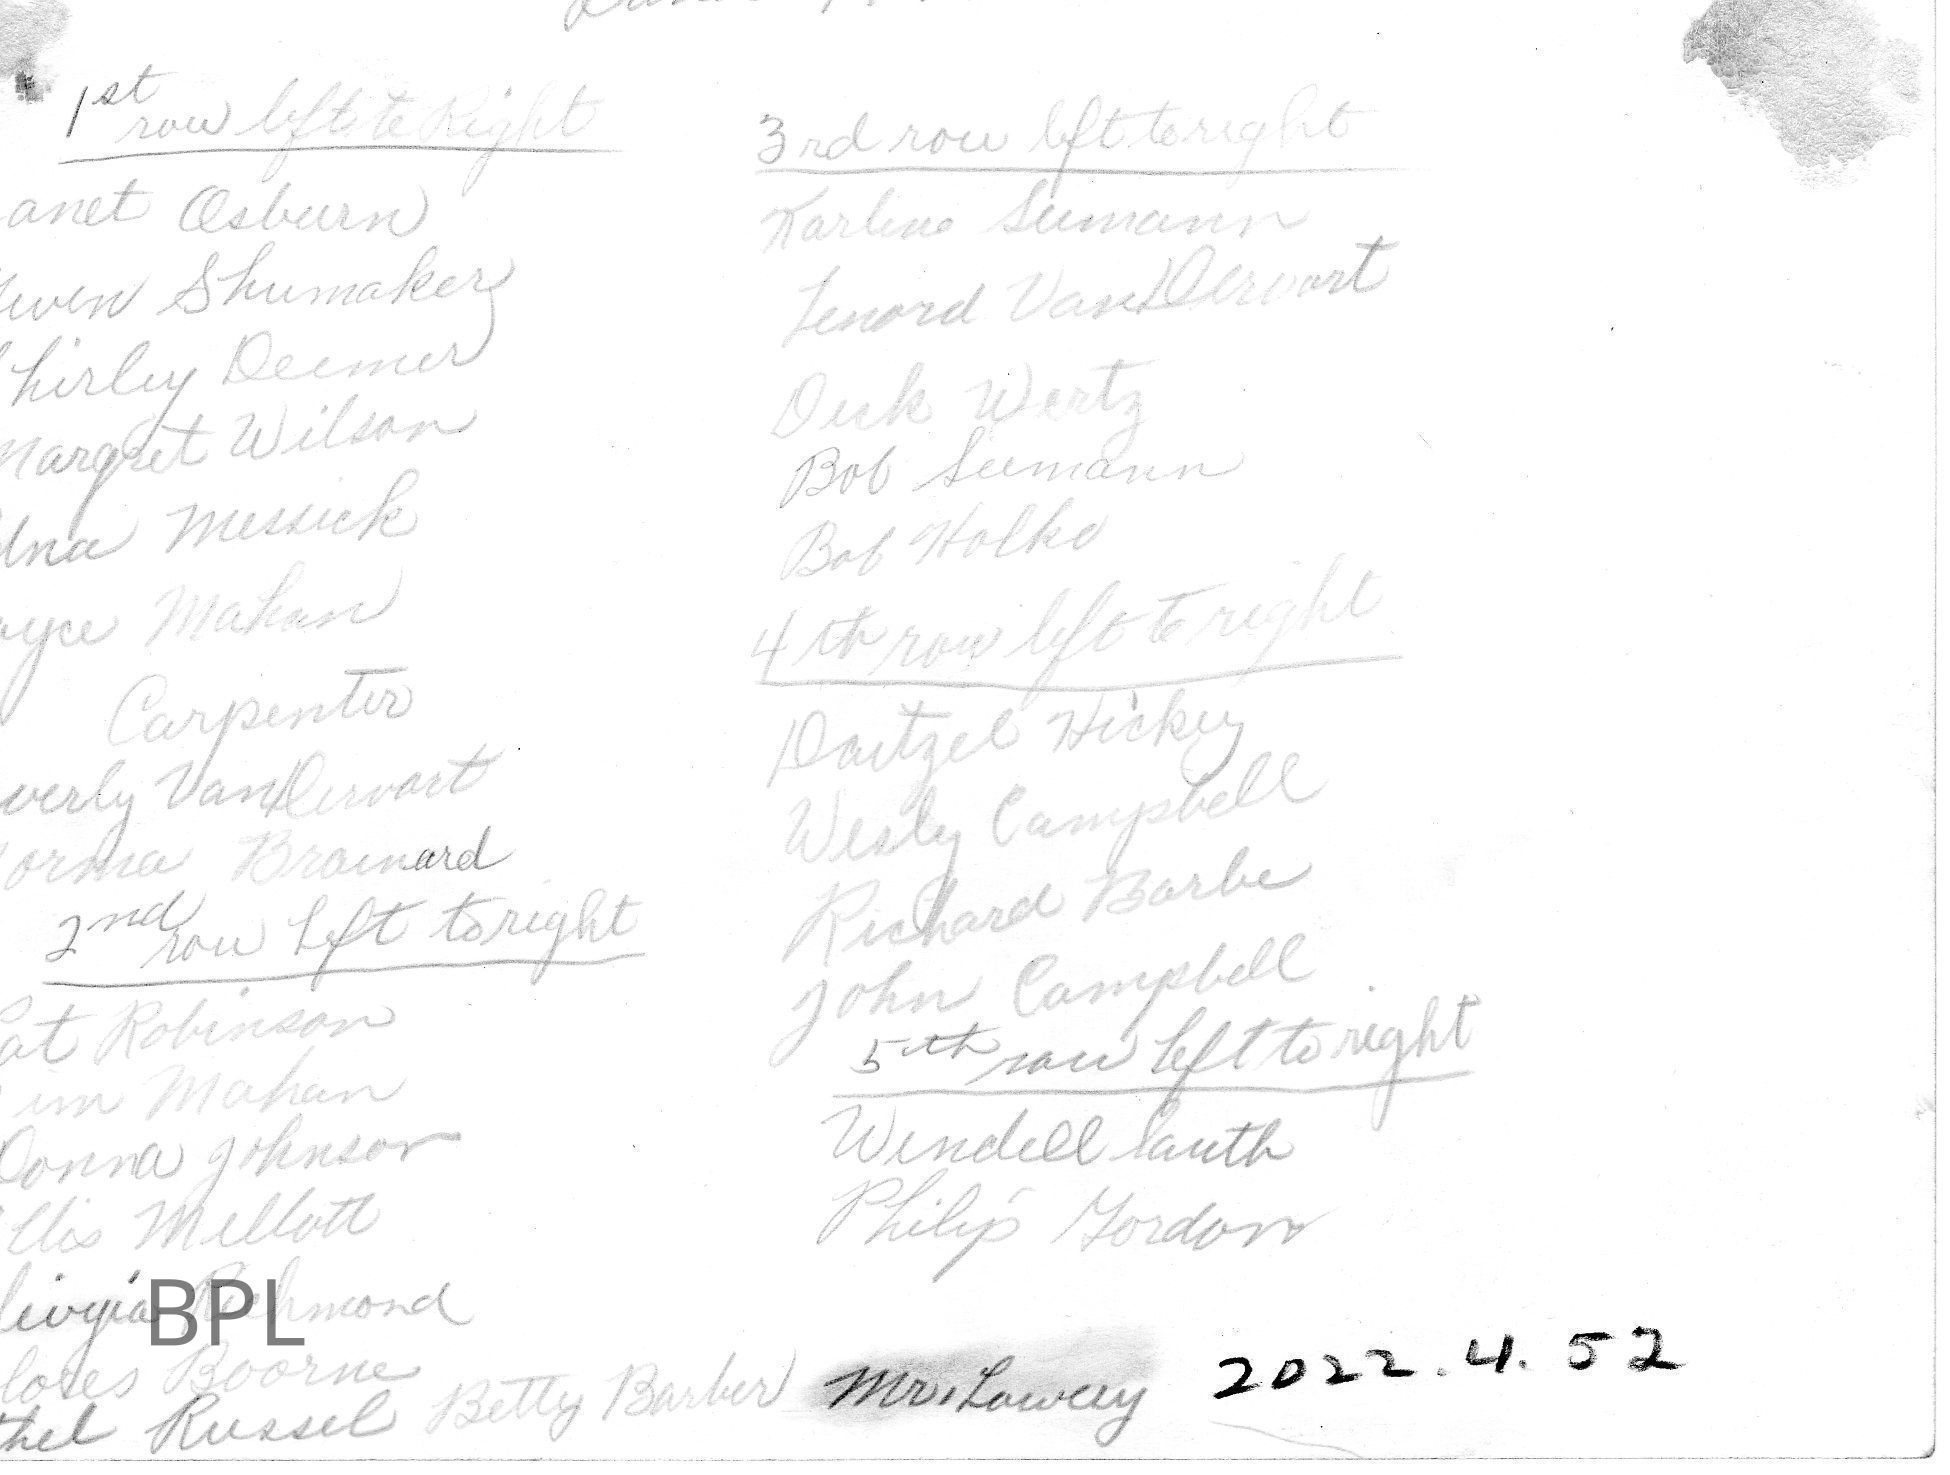 1st row left to Right
anet Osburn
Shumaker
hirley Deemer
Margret Wilson
dna Messick
oyce Mahan
Carpenter
verly VanDervort
orma Brainard
2nd row left to right
Pat Robinson
im Mahan
Donna Johnson
llis Mellott
Richmond
lores Boorne
thel Russel Betty Barber Mr. Lowery
3rd row left to right
Karline Seemann
Lenord VanDervort
Dick Wertz
Bob Seemann
Bob Holko
4th row left to right
Daitzel Hickey
Wesly Campbell
Richard Barbe
John Campbell
5th row left to right
Wendell Lauth
Philip Gordon
2022.4.52
BPL